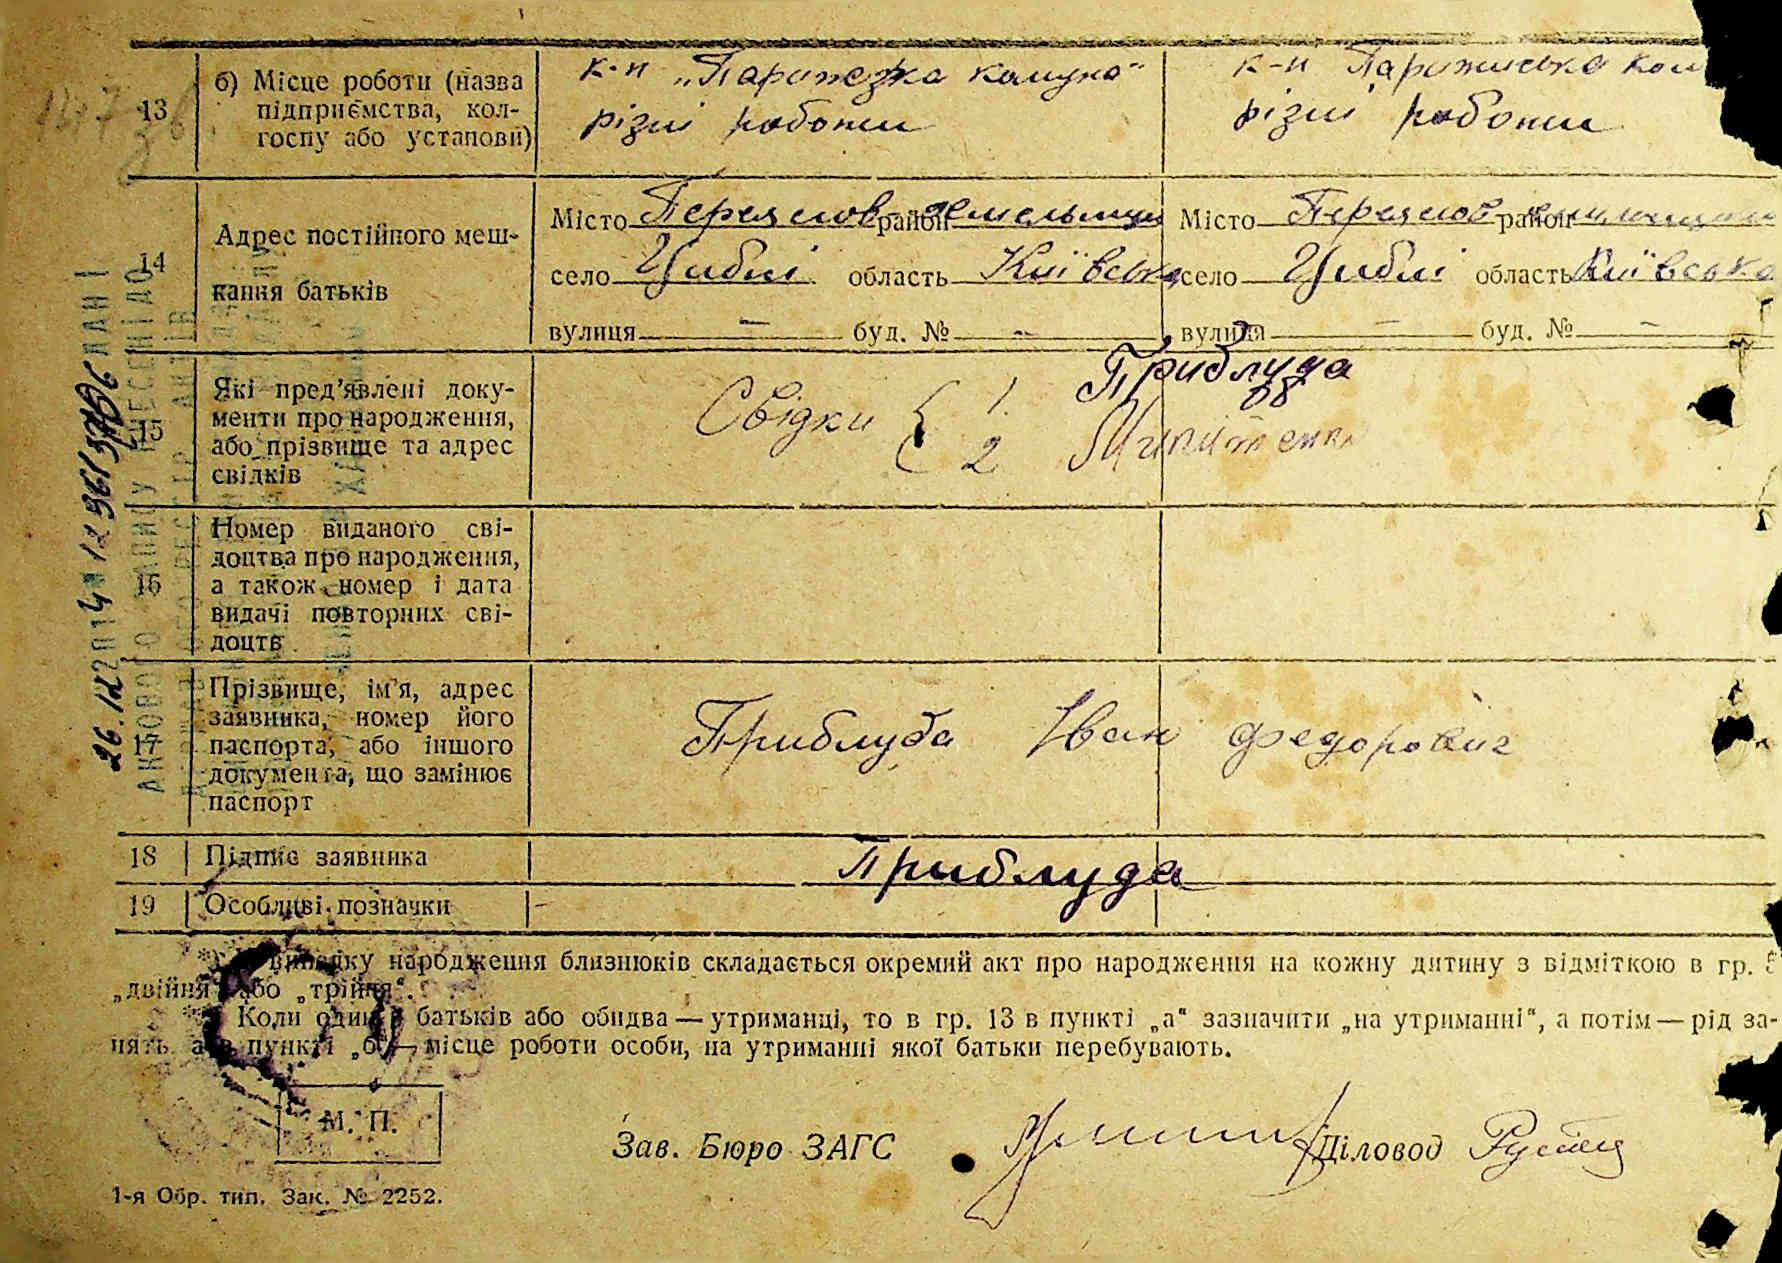 13
б) Місце роботи (назва
підприємства, кол-
госпу або установи)
к-п „Парижзка комуна"
різні роботи
к-п Парижська ком
різні роботи
14
Адрес постійного меш-
кання батьків
Місто Переяслов район Хмельниц
село Циблі область Київська
вулиця — буд. № —
Місто Переяслов район
село Циблі область Київська
вулиця — буд. № —
15
Які пред'явлені доку-
менти про народження,
або прізвище та адрес
свідків
Свідки { 1. Приблуда
2
16
Номер виданого сві-
доцтва про народження,
а також номер і дата
видачі повторних сві-
доцтв
17
Прізвище, ім'я, адрес
заявника, номер його
паспорта, або іншого
документа, що замінює
паспорт
Приблуда Іван Федорович
18 Підпис заявника
Приблуда
19 Особливі позначки —
випадку народження близнюків складається окремий акт про народження на кожну дитину з відміткою в гр. 5
„двійня" або „трійня".
Коли один з батьків або обидва — утриманці, то в гр. 13 в пункті „а" зазначити „на утриманні", а потім — рід за-
нять, а в пункті „б" — місце роботи особи, на утриманні якої батьки перебувають.
М. П.
Зав. Бюро ЗАГС
Діловод
1-я Обр. тип. Зак. № 2252.